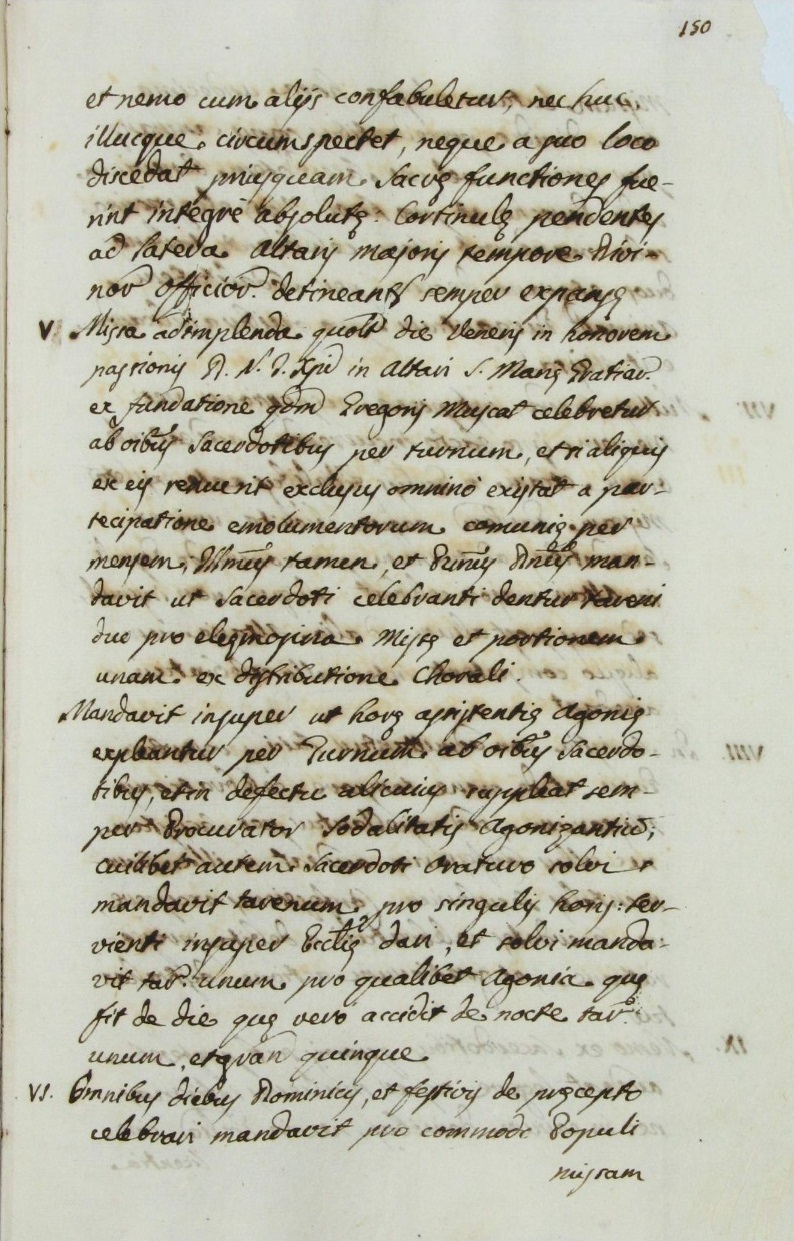 150
et nemo cum alijs confabuletur, nec huc,
illucque circumspectet, neque a suo loco
discedat priusquam sacrę functiones fue-
rint integrè absolutę. Cortinulę pendentes
ad latera Altaris majoris tempore Divi-
nor. officior. detineant.r semper expansę
V Missa adimplenda quolt. die Veneris in honorem
passionis D. N. J. Xpi in Altari S. Marię Gratiar.
ex fundatione qdm Gregorij Muscat celebretur
ab oibus Sacerdotibus per turnum, et si aliquis
ex eis renuerit exclusus omninò existat a par-
tecipatione emolumentorum comunis per
mensem; Illmus tamen, et Rmus Dnus man-
davit ut Sacerdoti celebranti dentur tareni
duo pro elęmosina Missę et portionem
unam ex distributione Chorali.
Mandavit insuper ut horę assistentię Agonię
expleantur per Turnum ab oibus Sacerdo-
tibus, et in defectu alicuius suppleat sem-
per Procurator Sodalitatis Agonizantiũ;
cuilibet autem Sacerdoti oraturo solvi
mandavit tarenum pro singulis horis: ser-
vienti insuper Ecclię dari, et solvi manda-
vit tar. unum pro qualibet Agonia quę
fit de die quę verò accidit de nocte tar.
unum, et gran quinque
VI. Omnibus diebus Dominicis, et festivis de pręcepto
celebrari mandavit pro commodo Populi
missam